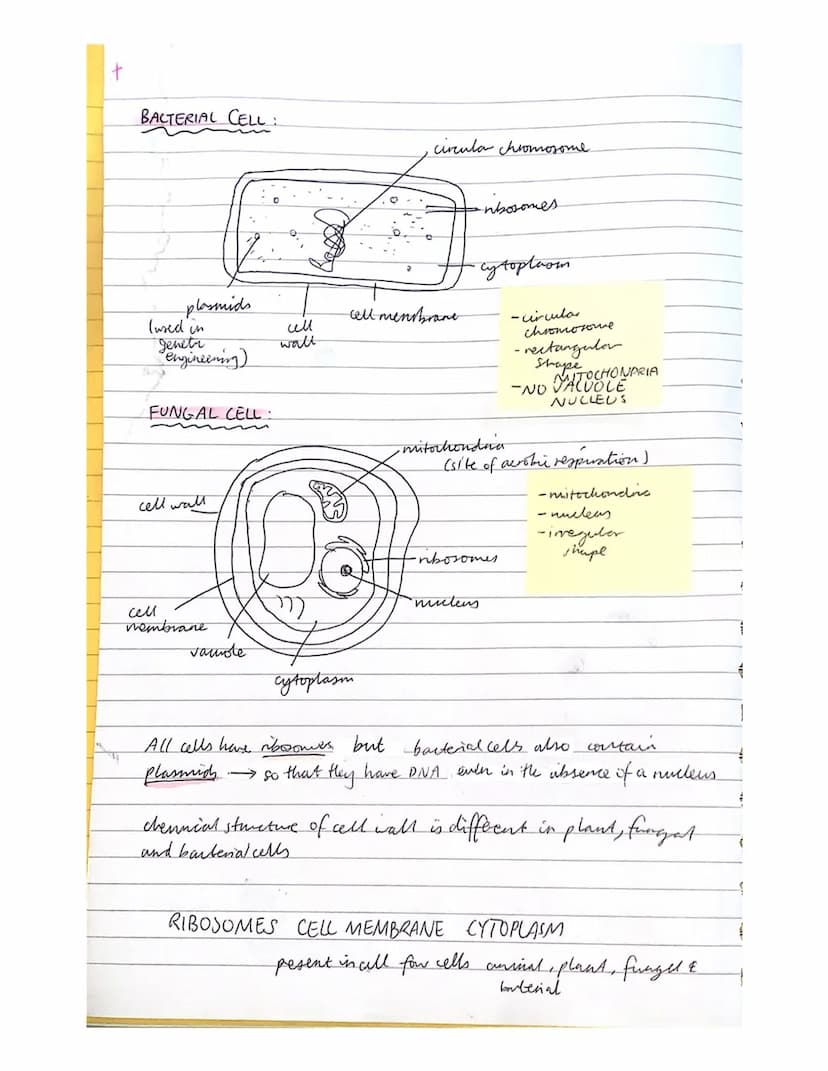 BACTERIAL CELL:
circular chromosome
ribosomes
cytoplasm
plasmids
(used in
genetic
engineering)
cell
wall
cell membrane
- circular
chromosome
- rectangular
shape
MITOCHONDRIA
- NO VACUOLE
NUCLEUS
FUNGAL CELL:
mitochondria
(site of aerobic respiration)
cell wall
- mitochondria
- nucleus
- irregular
shape
ribosomes
nucleus
cell
membrane
vacuole
cytoplasm
All cells have ribosomes but bacterial cells also contain
plasmids → so that they have DNA even in the absence of a nucleus
chemical structure of cell wall is different in plant, fungal
and bacterial cells
RIBOSOMES CELL MEMBRANE CYTOPLASM
present in all four cells animal, plant, fungal &
bacterial